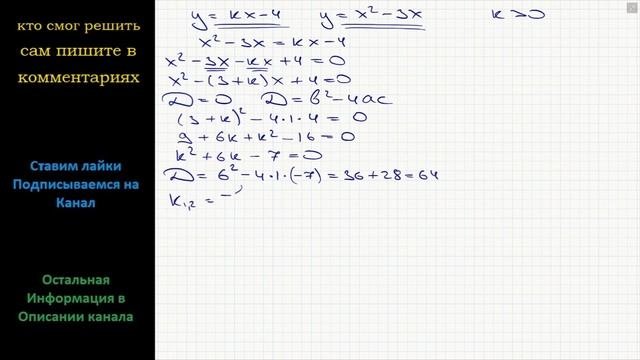 кто смог решить
сам пишите в
комментариях
Ставим лайки
Подписываемся на
Канал
Остальная
Информация в
Описании канала
y = kx - 4 y = x² - 3x k > 0
x² - 3x = kx - 4
x² - 3x - kx + 4 = 0
x² - (3 + k)x + 4 = 0
D = 0 D = b² - 4ac
(3 + k)² - 4·1·4 = 0
9 + 6k + k² - 16 = 0
k² + 6k - 7 = 0
D = 6² - 4·1·(-7) = 36 + 28 = 64
k₁,₂ = -